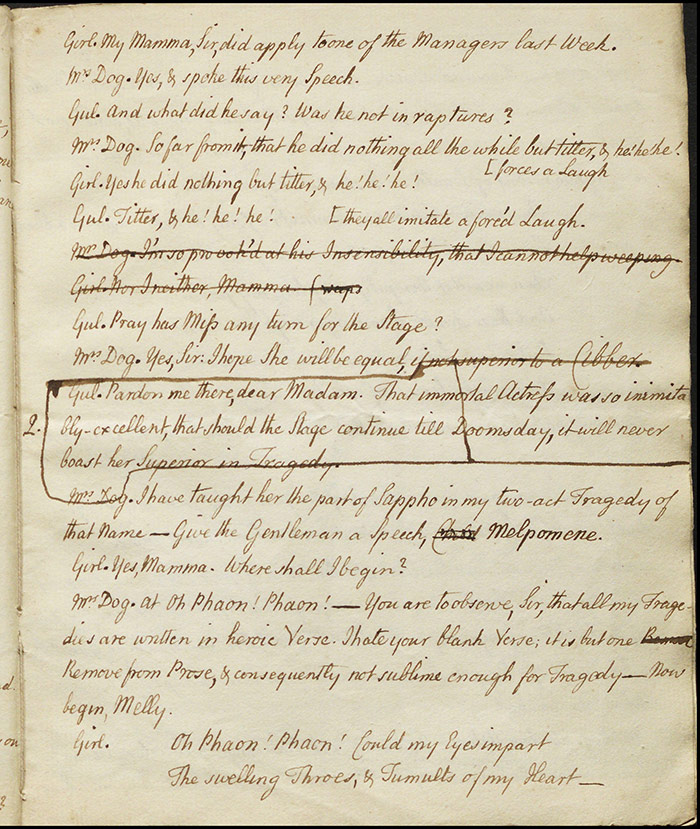 Girl. My Mamma, Sir, did apply to one of the Managers last Week.
Mrs Dog. Yes, & spoke this very Speech.
Gul. And what did he say? Was he not in raptures?
Mrs Dog. So far from it, that he did nothing all the while but titter, & he! he! he!
[forces a Laugh
Girl. Yes he did nothing but titter, & he! he! he!
Gul. Titter, & he! he! he! [they all imitate a forc'd Laugh.
Mrs Dog. I'm so provok'd at his Insensibility, that I cannot help weeping
Girl. Nor I neither, Mamma. [weeps
Gul. Pray has Miss any turn for the Stage?
Mrs Dog. Yes, Sir: I hope She will be equal, if not superior to a Cibber.
Gul. Pardon me there, dear Madam. That immortal Actress was so inimita
2. bly-excellent, that should the Stage continue till Doomsday, it will never
boast her Superior in Tragedy.
Mrs Dog. I have taught her the part of Sappho in my two-act Tragedy of
that Name — Give the Gentleman a Speech, Melpomene.
Girl. Yes, Mamma. Where shall I begin?
Mrs Dog. At Oh Phaon! Phaon! — You are to observe, Sir, that all my Trage-
dies are written in heroic Verse. I hate your blank Verse; it is but one
Remove from Prose, & consequently not sublime enough for Tragedy — Now
begin, Melly.
Girl. Oh Phaon! Phaon! Could my Eyes impart
The swelling Throes, & Tumults of my Heart —